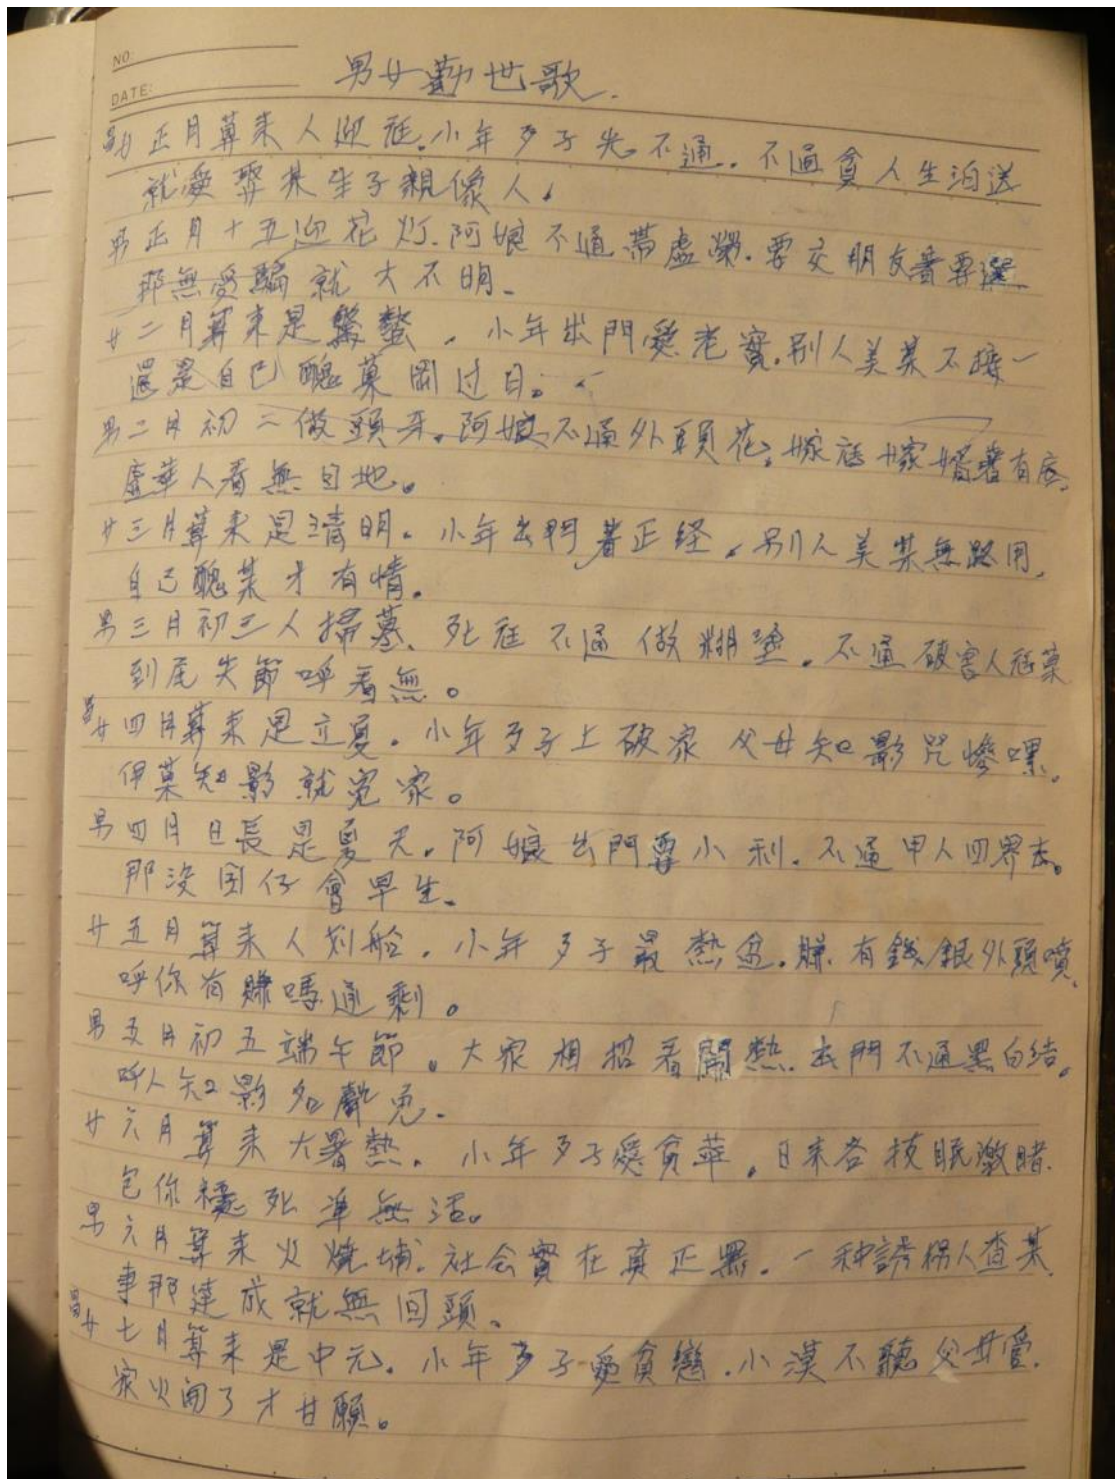 NO.
DATE:
男女勸世歌.
女正月算來人迎尪.小年歹子尖不通.不通貪人生泊送
就愛娶某生子親像人.
男正月十五迎花灯.阿娘不通帶虛榮.要交朋友著要選
那無受騙就大不明.
女二月算來是驚蟄,小年出門愛老實.別人美某不接一
還是自己醜某罔过日。
男二月初二做頭牙.阿娘不通外頭花.嫁尪嫁婿著有底.
虛華人看無目地。
女三月算來是清明。小年出門著正経.別人美某無路用.
自己醜某才有情.
男三月初三人掃墓.死尪不通做糊塗.不通破害人尪某
到尾失節呼看無。
女四月算來是立夏.小年歹子上破家 父母知影咒慘嘿.
伊某知影就冤家。
男四月日長是夏天.阿娘出門要小利.不通甲人四界去。
那没囝仔會早生.
女五月算來人划船.小年歹子最熱盆.賺有錢銀外頭噴.
呼你有賺嗎通剩。
男五月初五端午節。大家相招看鬧熱.去門不通黑白结。
呼人知影名聲兎.
女六月算來大暑熱.小年歹子愛貪華.日來各技眠激賭.
包你穩死準無活。
男六月算來火燒埔.社会實在真正黑.一種誘拐人查某.
事那達成就無回頭.
女七月算來是中元.小年歹子愛貪戀.小漢不聽父母管.
家火閙了才甘願。